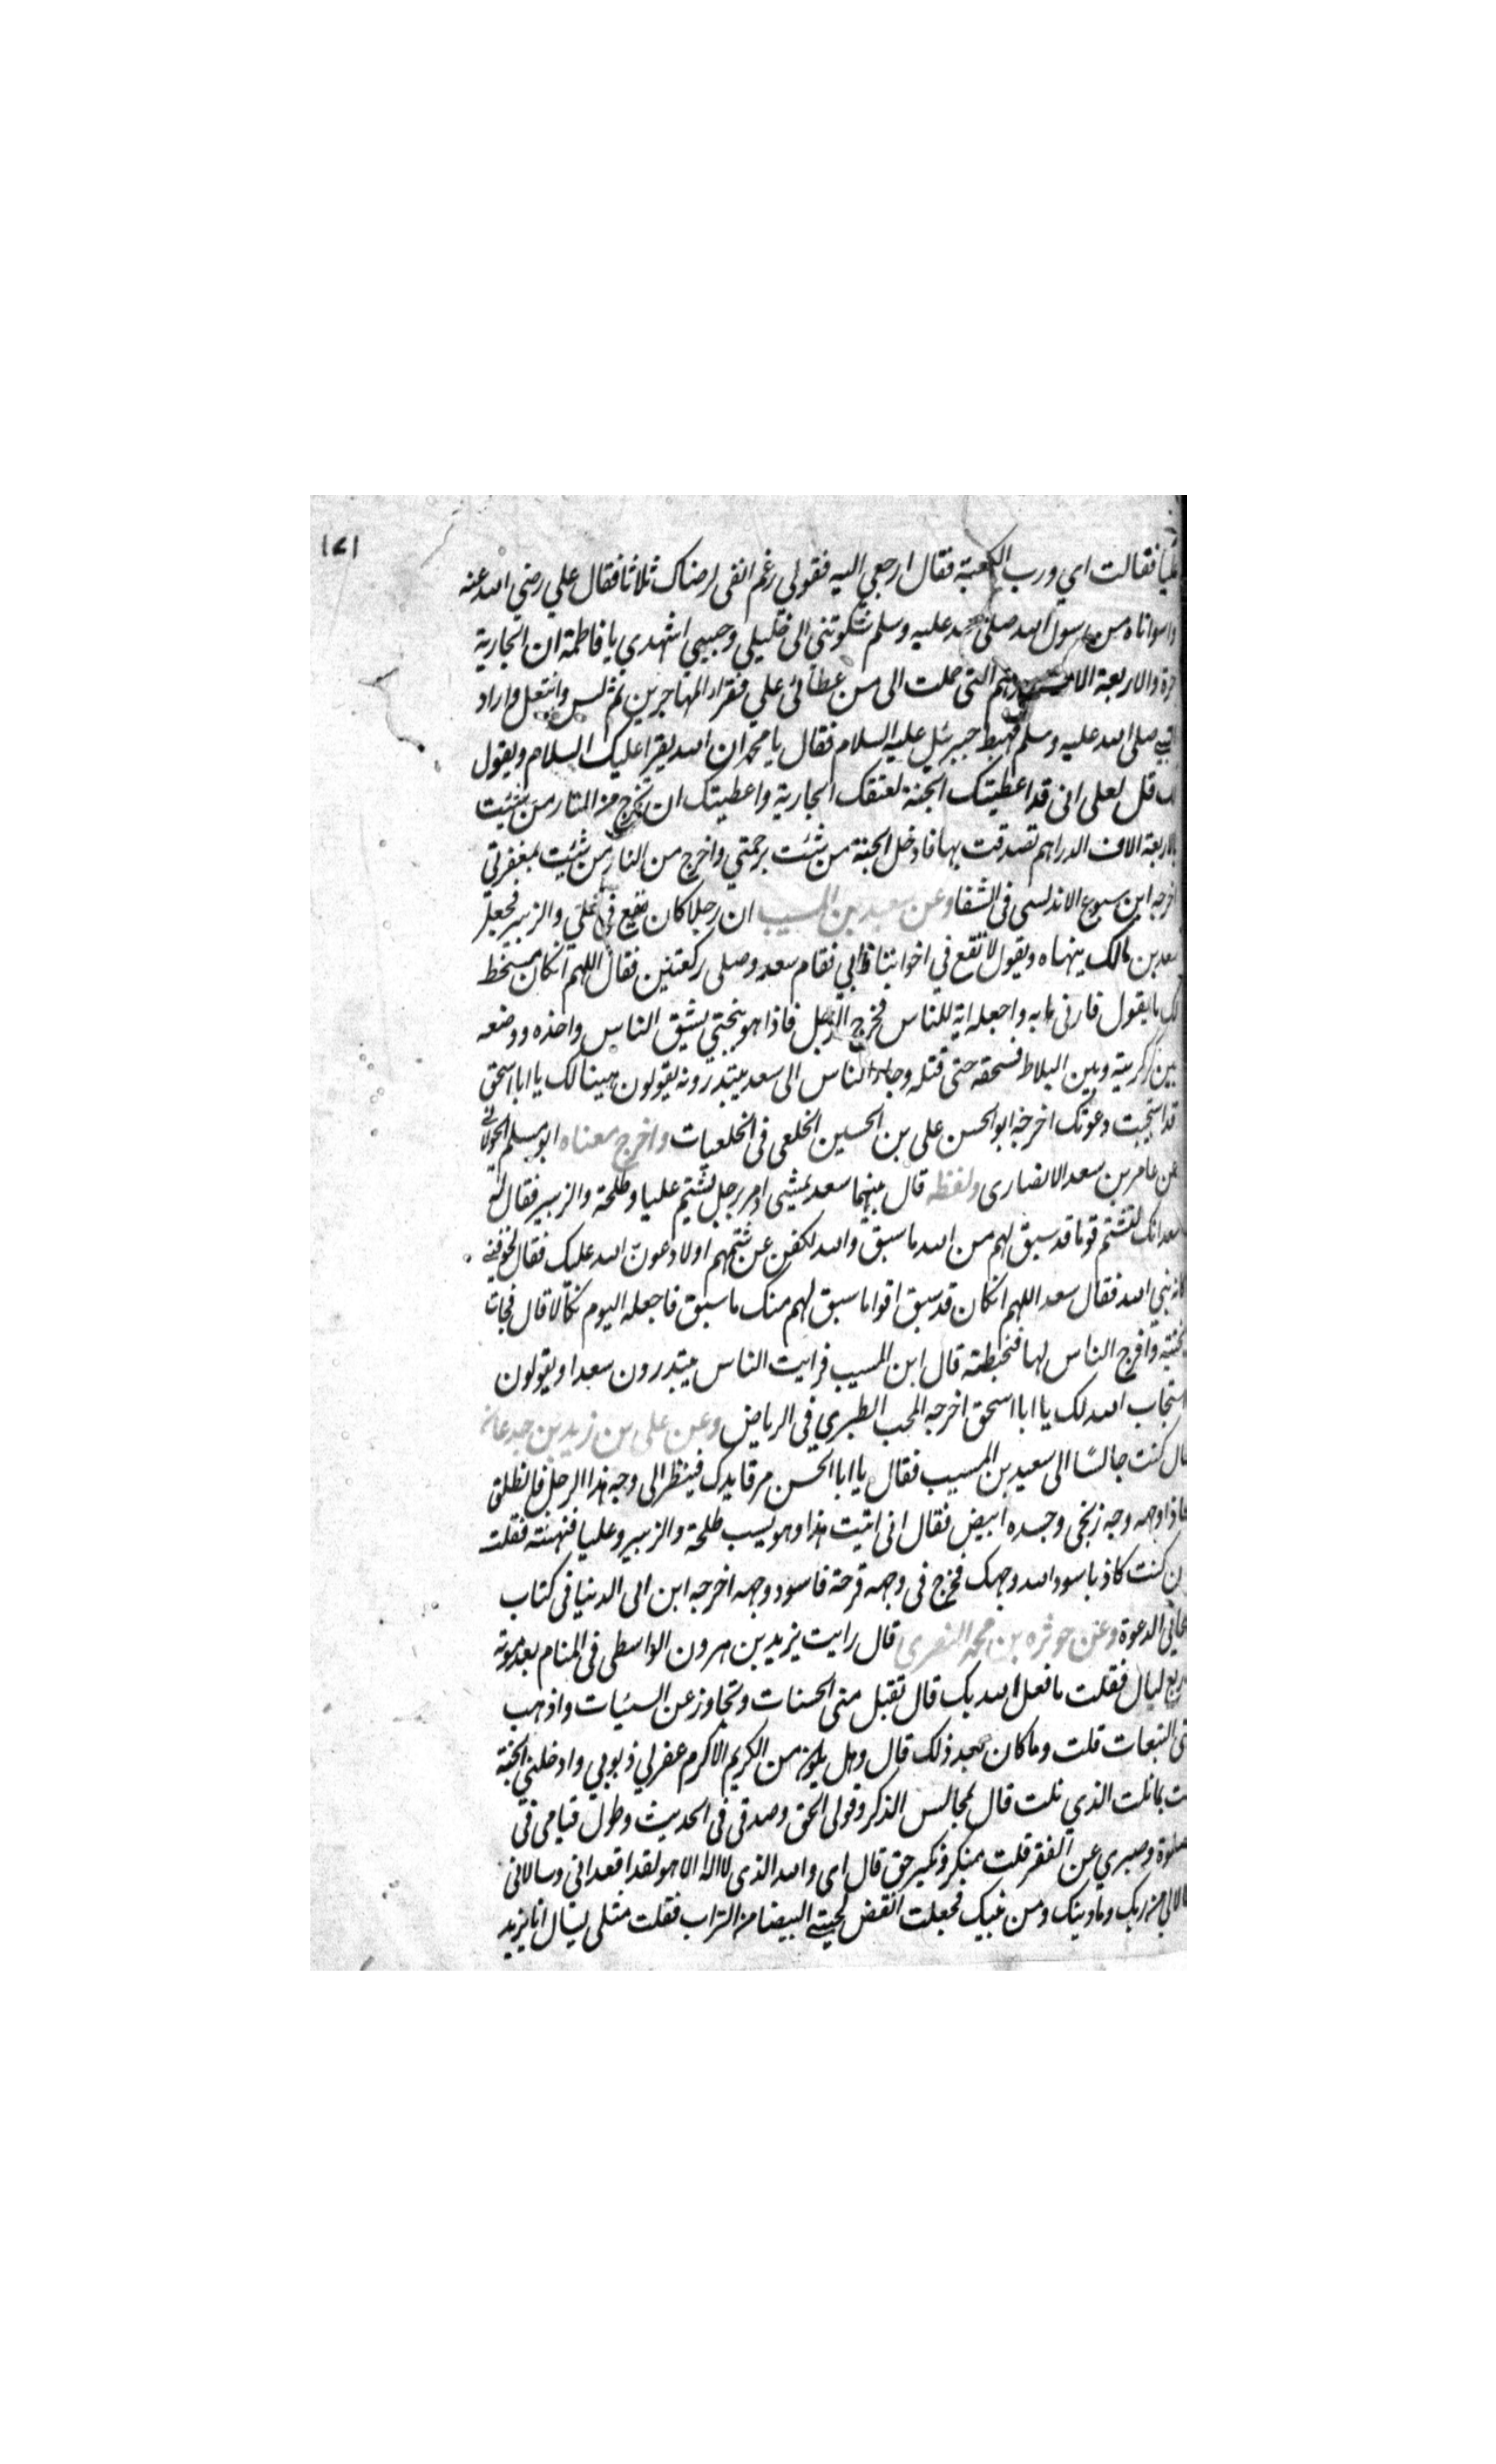 ١٧١
عليا فقالت اي ورب الكعبة فقال ارجعي اليه فقولي رغم انفى لرضاك ثلاثا فقال علي رضي الله عنه
واسواتاه من رسول الله صلى الله عليه وسلم شكوتني الى خليلي وحبيبي اشهدي يا فاطمة ان الجارية
حرة والاربعة الالاف درهم التى حملت الى من عطائى علي فقراء المهاجرين ثم لبس وانتعل واراد
النبي صلى الله عليه وسلم فهبط جبرئيل عليه السلام فقال يا محمد ان الله يقرا عليك السلام ويقول
لك قل لعلى انى قد اعطيتك الجنة لعتقك الجارية واعطيتك ان تخرج من النار من شئيت
بالاربعة الاف الدراهم تصدقت بها فادخل الجنة من شئت برحمتي واخرج من النار من شئيت بمغفرتي
اخرجه ابن سبوع الاندلسى فى الشفا وعن سعيد بن المسيب ان رجلا كان يقع فى علي والزبير فجعل
سعد بن مالك ينهاه ويقول لا تقع في اخواننا فابي فقام سعد وصلى ركعتين فقال اللهم ان كان مسخط
لك ما يقول فارنى به واجعله اية للناس فخرج الرجل فاذا هو بنجتي يشيق الناس واخذه ووضعه
بين كركرية وبين البلاط فسحقه حتى قتله وجاء الناس الى سعد يبتدرونه يقولون هينا لك يا ابا اسحق
قد استجيبت دعوتك اخرجه ابو الحسن على بن الحسين الخلعى فى الخلعيات واخرج معناه ابو مسلم الخولانى
عن عامر بن سعد الانصارى ولفظه قال بينهما سعد يمشي اذ مر برجل يشتم عليا وطلحة والزبير فقال له
سعد انك لتشتم قوما قد سبق لهم من الله ما سبق والله لتكفن عن شتمهم اولا دعون الله عليك فقال تخوفني
كانه نبي الله فقال سعد اللهم ان كان قد سبق اقواما سبق لهم منك ما سبق فاجعله اليوم نكالا قال فجات
بختية وافرج الناس لها فتخبطته قال ابن المسيب فرايت الناس يبتدرون سعدا ويقولون
استجاب الله لك يا ابا اسحق اخرجه المحب الطبري فى الرياض وعن على بن زيد بن جدعان
قال كنت جالسًا الى سعيد بن المسيب فقال يا ابا الحسن مر قايدك فينظر الى وجه هذا الرجل فانطلق
فاذا وجهه وجه زنجى وجسده ابيض فقال انى اتيت هذا وهو يسب طلحة والزبير وعليا فنهيته فقلت
ان كنت كاذبا سود الله وجهك فخرج فى وجهه قرحة فاسود وجهه اخرجه ابن ابى الدنيا فى كتاب
مجابي الدعوة وعن حوثره بن محمد البصرى قال رايت يزيد بن هرون الواسطى فى المنام بعد موته
باربع ليال فقلت ما فعل الله بك قال تقبل منى الحسنات وتجاوز عن السيئات واذهب
عنى التبعات قلت وما كان بعد ذلك قال وهل يكون من الكريم الا كرم غفر لي ذنوبي وادخلني الجنة
قلت بما نلت الذي نلت قال بمجالس الذكر وقولى الحق وصدقى فى الحديث وطول قيامى فى
الصلوة وصبري عن الفقر قلت منكر ونكير حق قال اى والله الذى لا اله الا هو لقد اقعدانى وسالانى
فقالا لى من ربك وما دينك ومن نبيك فجعلت انفض لحيتي البيضا من التراب فقلت مثلى يسال انا يزيد